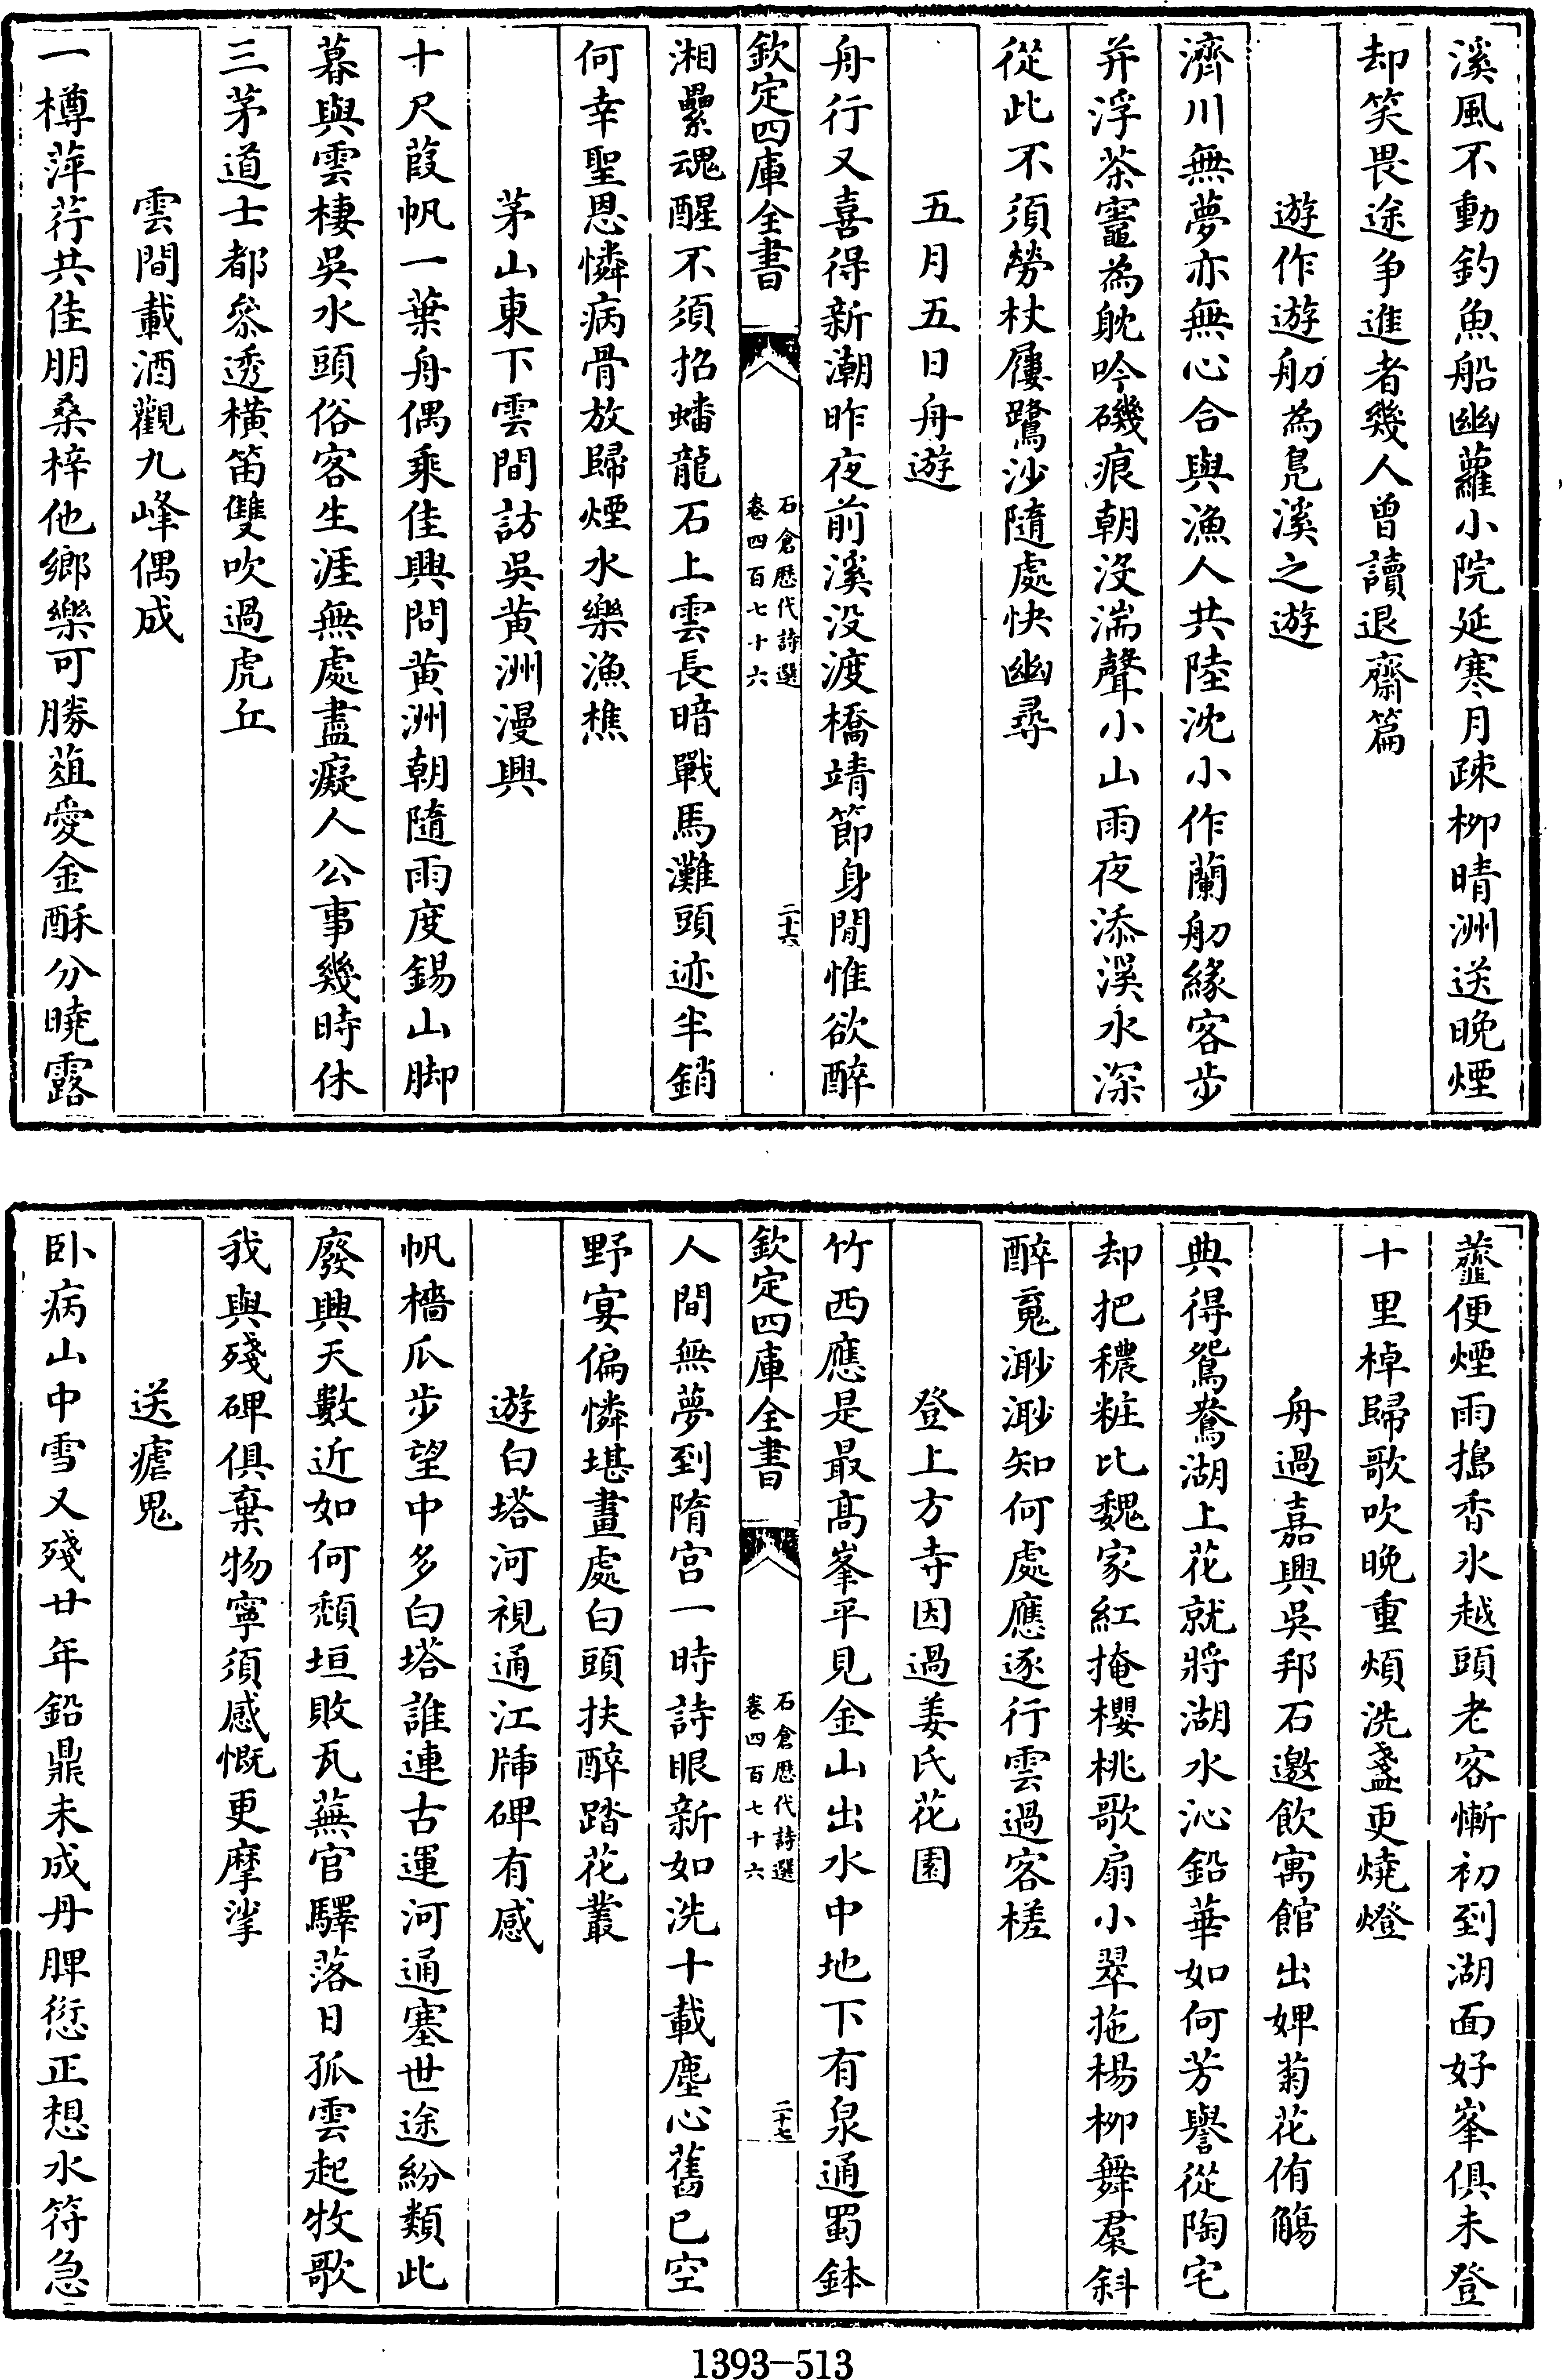 溪風不動釣魚船幽蘿小院延寒月疎柳晴洲送晚煙
却笑畏途争進者幾人曾讀退齋篇
遊作遊舠為鳬溪之遊
濟川無夢亦無心合與漁人共陸沈小作蘭舠緣客步
并浮茶竈為躭吟磯痕朝沒湍聲小山雨夜添溪水深
從此不須勞杖屨鷺沙隨處快幽尋
五月五日舟遊
舟行又喜得新潮昨夜前溪没渡橋靖節身閒惟欲醉
欽定四庫全書
石倉歴代詩選
卷四百七十六
二十六
湘纍魂醒不須招蟠龍石上雲長暗戰馬灘頭迹半銷
何幸聖恩憐病骨放歸煙水樂漁樵
茅山東下雲間訪吳黄洲漫興
十尺葭帆一葉舟偶乘佳興問黄洲朝隨雨度錫山脚
暮與雲棲吳水頭俗客生涯無處盡癡人公事幾時休
三茅道士都叅透橫笛雙吹過虎丘
雲間載酒觀九峰偶成
一樽萍荇共佳朋桑梓他鄉樂可勝葅愛金酥分曉露
虀便煙雨搗香氷越頭老客慚初到湖面好峯俱未登
十里棹歸歌吹晚重煩洗盞更燒燈
舟過嘉興吳邦石邀飲寓館出婢菊花侑觴
典得鴛鴦湖上花就將湖水沁鉛華如何芳譽從陶宅
却把穠粧比魏家紅掩櫻桃歌扇小翠拖楊柳舞裙斜
醉寃渺渺知何處應逐行雲過客槎
登上方寺因過姜氏花園
竹西應是最高峯平見金山出水中地下有泉通蜀鉢
欽定四庫全書
石倉歴代詩選
卷四百七十六
二十七
人間無夢到隋宫一時詩眼新如洗十載塵心舊已空
野宴偏憐堪畫處白頭扶醉踏花叢
遊白塔河視通江牐碑有感
帆檣瓜步望中多白塔誰連古運河通塞世途紛類此
廢興天數近如何頽垣敗瓦蕪官驛落日孤雲起牧歌
我與殘碑俱棄物寧須感慨更摩挲
送瘧鬼
卧病山中雪又殘廿年鉛鼎未成丹脾愆正想水符急
1393-513